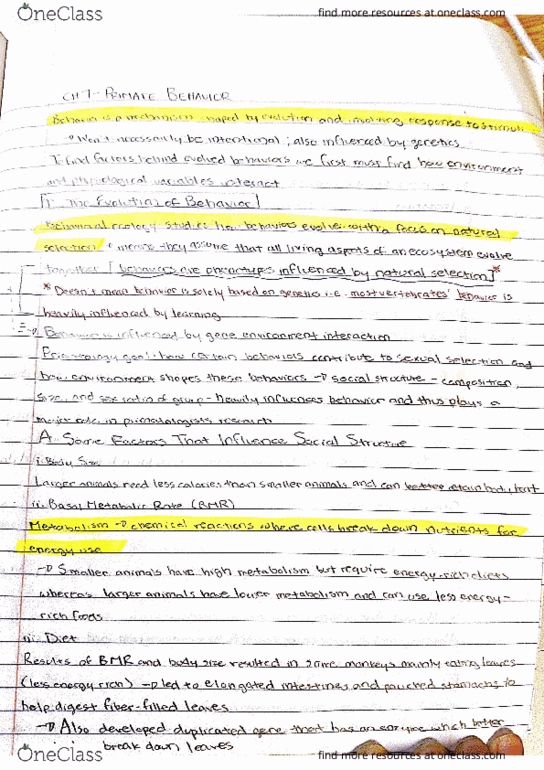 OneClass
find more resources at oneclass.com
CH 7- PRIMATE BEHAVIOR
Behavior is a mechanism shaped by evolution and involving response to stimuli
→ Won't necessarily be intentional; also influenced by genetics
To find factors behind evolved behaviors we first must find how environment
and physiological variables interact
I. The Evolution of Behavior
Behavioral ecology studies how behaviors evolve with a focus on natural
selection means they assume that all living aspects of an ecosystem evolve
together [behaviors are phenotypes influenced by natural selection]*
* Doesn't mean behavior is solely based on genetics i.e. most vertebrates' behavior is
heavily influenced by learning
→ Behavior is influenced by gene environment interaction
Primatology goal: how certain behaviors contribute to sexual selection and
how environment shapes these behaviors → social structure - composition,
size, and sex ratio of group - heavily influences behavior and thus plays a
major role in primatologists research
A. Some Factors That Influence Social Structure
i. Body Size
Larger animals need less calories than smaller animals and can better retain body heat
ii. Basal Metabolic Rate (BMR)
Metabolism → chemical reactions where cells break down nutrients for
energy use
→ Smaller animals have high metabolism but require energy-rich diets
whereas larger animals have lower metabolism and can use less energy-
rich foods
iii. Diet
Results of BMR and body size resulted in some monkeys mainly eating leaves
(less energy rich) → led to elongated intestines and pouched stomachs to
help digest fiber-filled leaves
→ Also developed duplicated gene that has an enzyme which better
break down leaves
OneClass
find more resources at oneclass.com